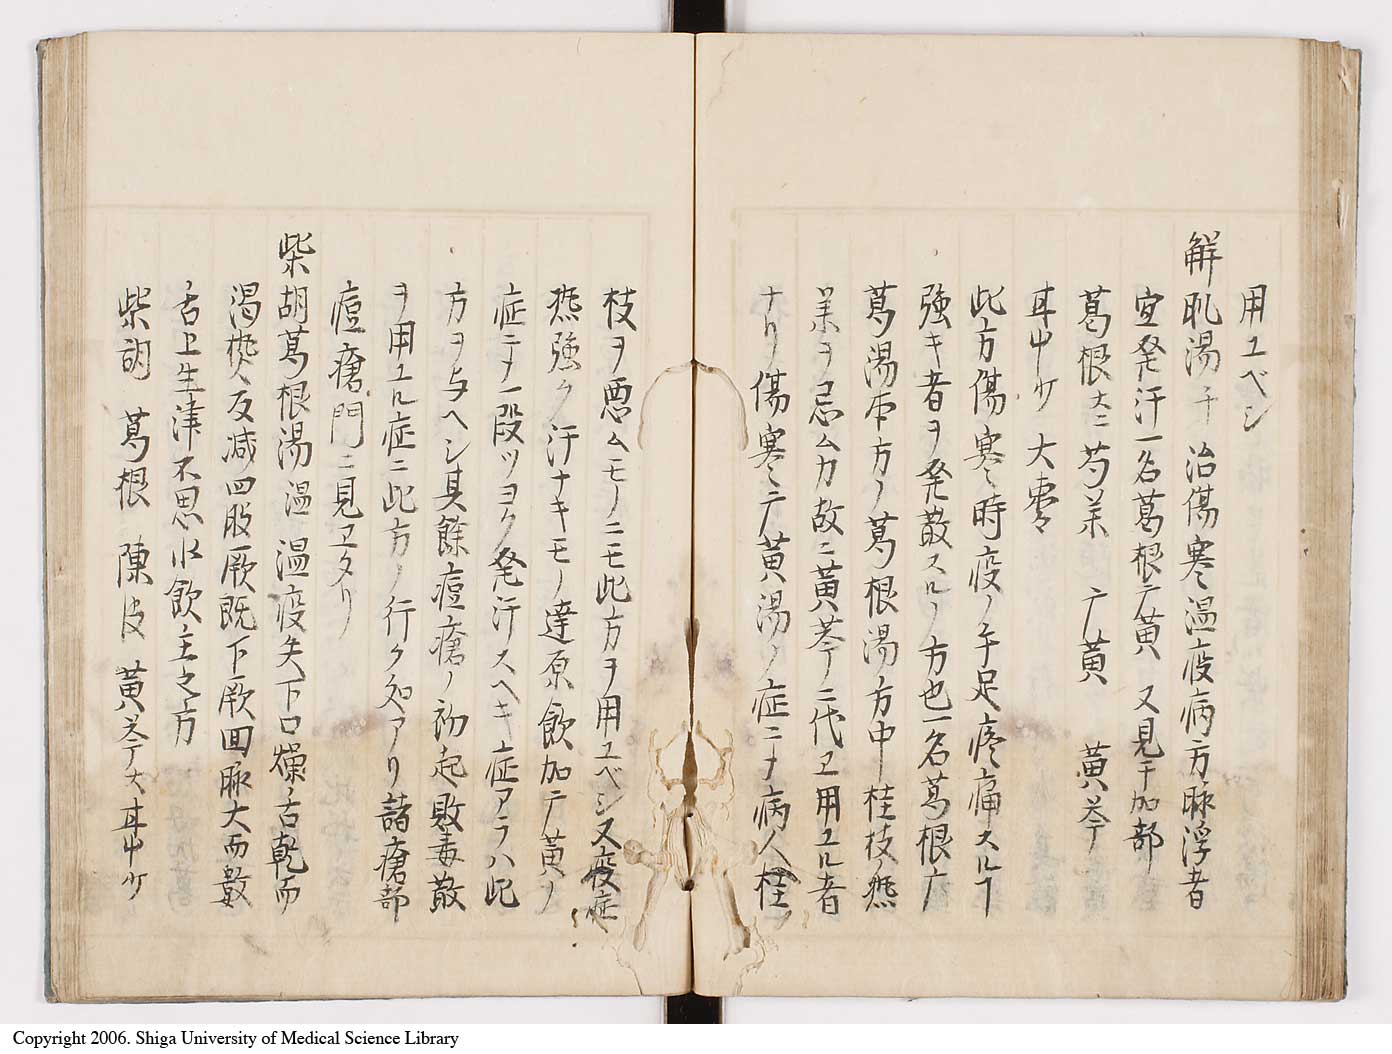 用ユベシ
解肌湯千 治傷寒温疫病方脉浮者
宜発汗一名葛根广黄 又見千加部
葛根大二 芍薬 广黄 黄芩
甘中ケ 大棗
此方傷寒時疫ノ手足疼痛スルヿ
強キ者ヲ発散スルノ方也一名葛根广
葛湯本方ノ葛根湯ノ方中桂枝ノ燕
薬ヲ忌ム力故ニ黄芩ニ代ヱ用ユル者
ナリ傷寒广黄湯ノ症ニテ病人桂
枝ヲ悪ムモノニモ此方ヲ用ユベシ又疫症
熱強ク汗ナキモノ達原飲加广黄ノ
症ニテ一段ツヨク発汗スヘキ症アラハ此
方ヲ与ヘシ其餘痘瘡ノ初起敗毒散
ヲ用ユル症ニ此方ノ行ク処アリ諸瘡部
痘瘡門ニ見ヱタリ
柴胡葛根湯温 温疫失下口燥舌乾而
渇熱反减四股厥既下厥回脉大而数
舌上生津不思水飲主之方
柴胡 葛根 陳皮 黄芩大 甘中ケ
Copyright 2006. Shiga University of Medical Science Library